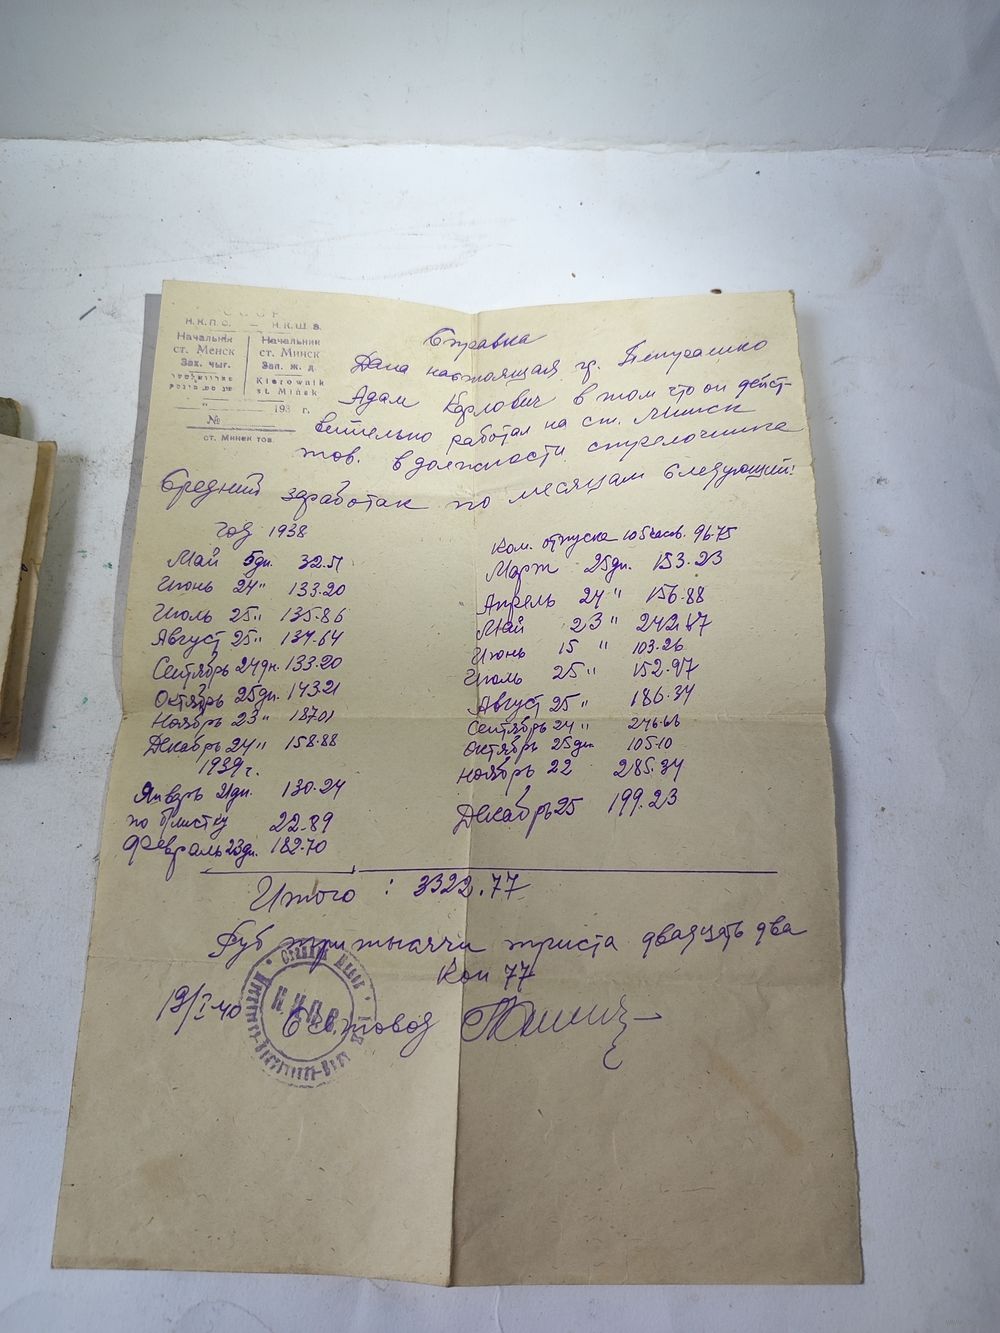 СССР
Н.К.П.С. — Н.К.Ш.З.
Начальнік
ст. Менск
Зах. чыг.
Начальник
ст. Минск
Зап. ж. д.
Kierownik
st. Mińsk
193 г.
№
ст. Минск тов.
Справка
Дана настоящая гр. Петрашко
Адам Карлович в том что он дейст-
вительно работал на ст. Минск
тов. в должности стрелочника
Средний заработак по месяцам следующий:
год 1938
Май 5дн. 32.51
Июнь 24" 133.20
Июль 25" 135.86
Август 25" 134.64
Сентябрь 24дн. 133.20
Октябрь 25дн. 143.21
Ноябрь 23" 187.01
Декабрь 24" 158.88
1939 г.
Январь 21дн. 130.24
по б/листку 22.89
Февраль 23дн. 182.70
Ком. отпуска 105 часов. 96.75
Март 25дн. 153.23
Апрель 24" 156.88
Май 23" 242.87
Июнь 15" 103.26
Июль 25" 152.97
Август 25" 186.34
Сентябрь 24" 246.66
Октябрь 25дн 105.10
Ноябрь 22 285.34
Декабрь 25 199.23
Итого : 3322.77
Руб три тысяччи триста двадцать два
Коп 77
19/I-40 Счетовод
Н.К.П.С.